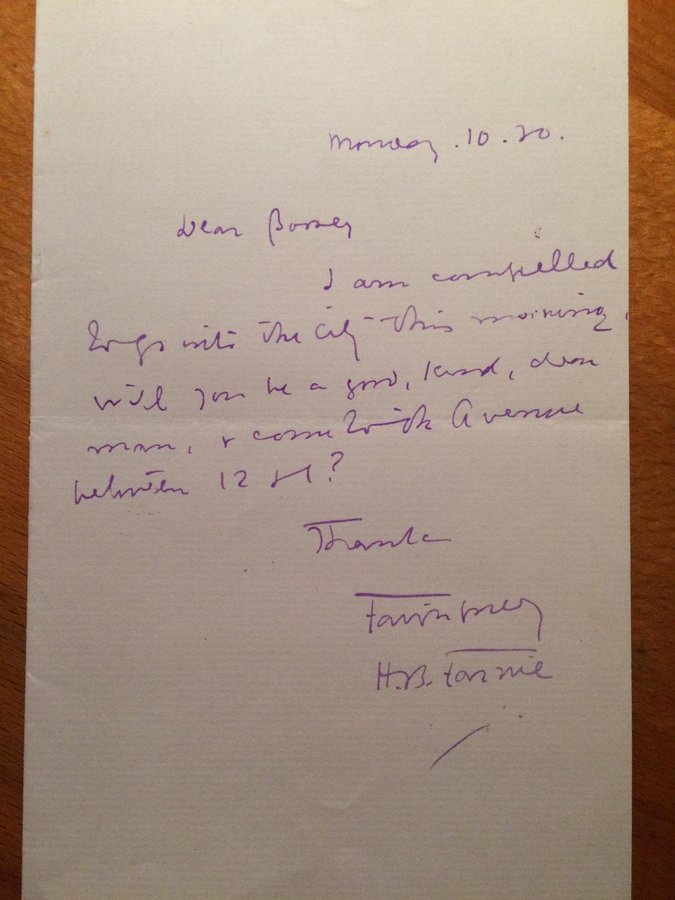 Monday . 10.30.
Dear Bossey
I am compelled
to go into the City this morning.
will you be a good, kind, dear
man, & come to Avenue
between 12 & 1?
Thanks
Faithfully
H.B. Farnie